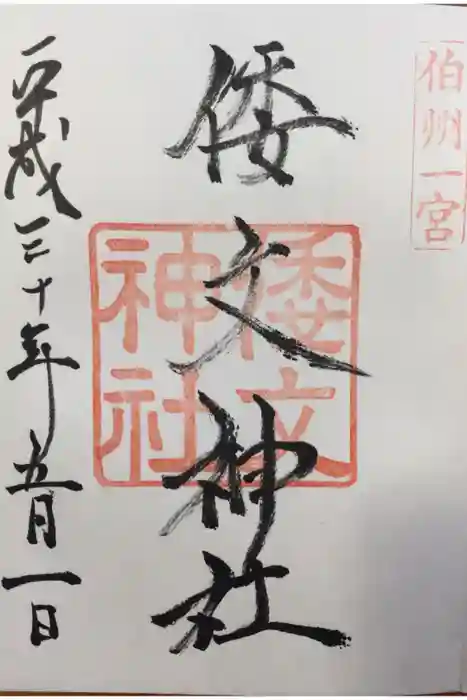 伯州一宮
倭文神社
倭文
神社
平成三十年五月一日